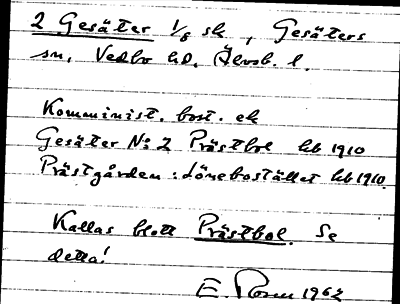 2 Gesäter 1/8 sk, Gesäters
sn, Vedbo hd. Älvsb. l.
Komminist. bost. ek
Gesäter No 2 Prästbol hb 1910
Prästgården : Lönebostället hb 1910.
Kallas blott Prästbol. Se
detta!
E. Rosen 1962